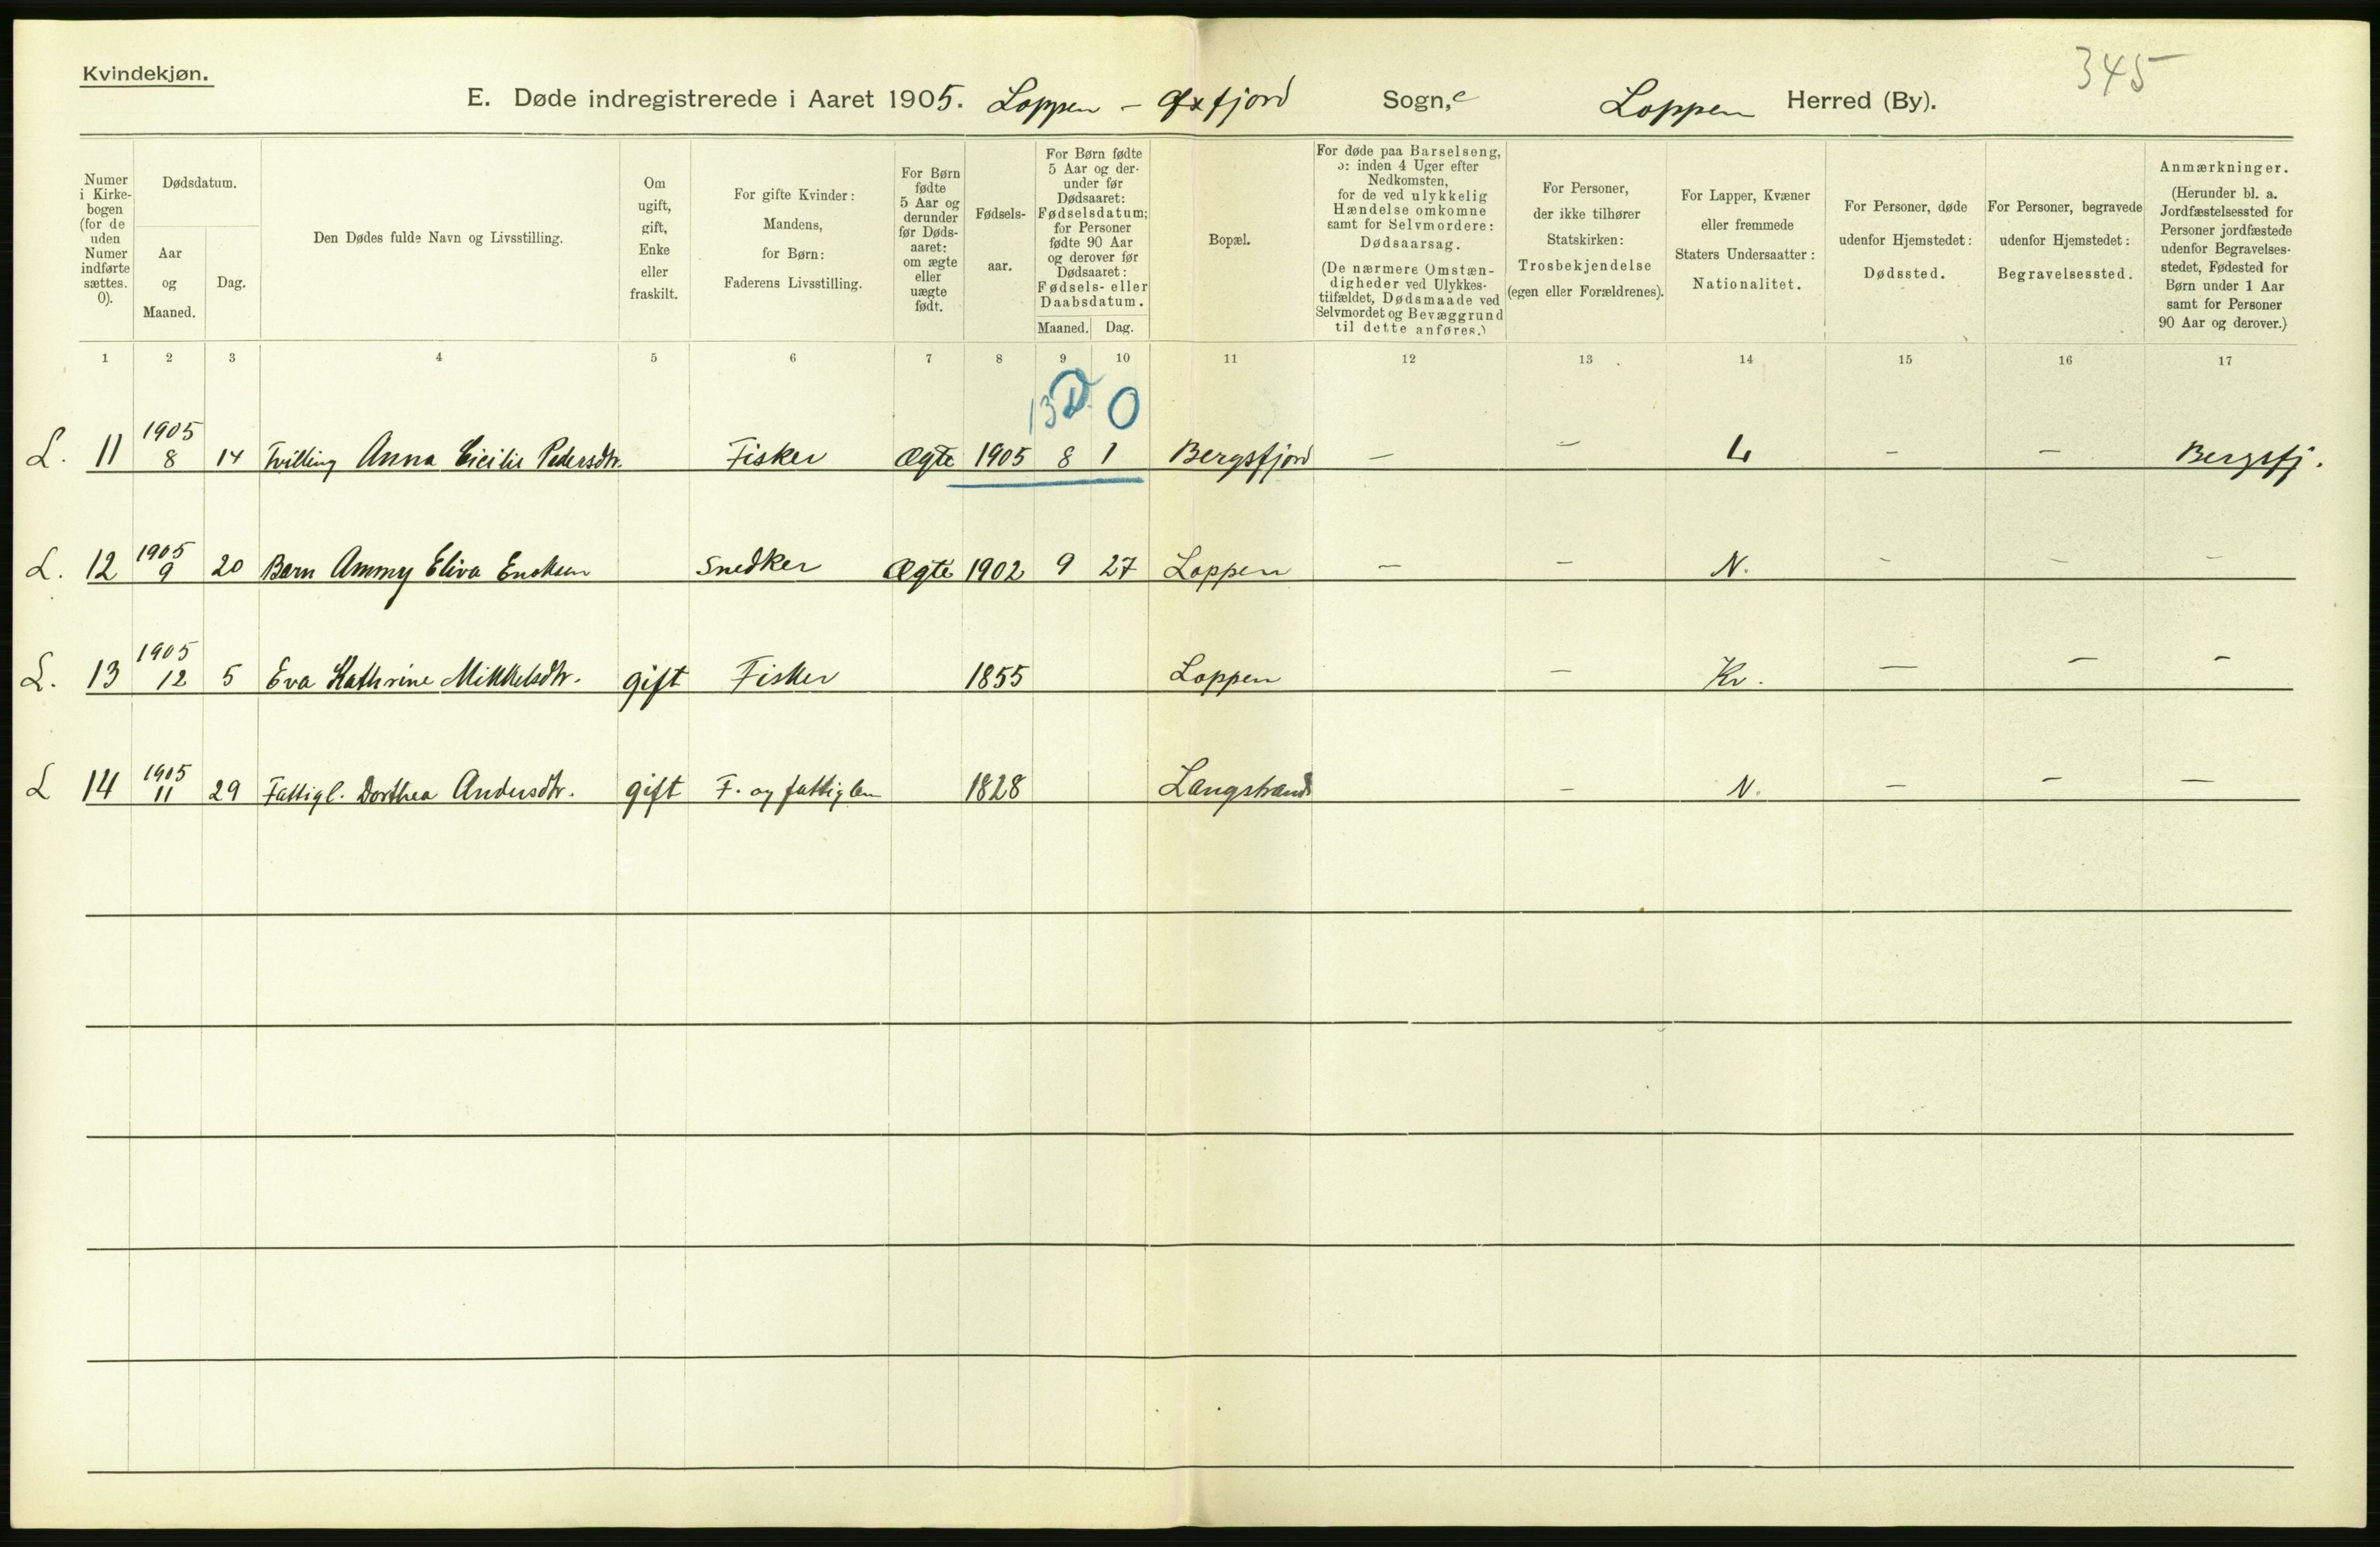 Kvindekjøn.
345
E. Døde indregistrerede i Aaret 1905. Loppen – Øxfjord Sogn,e Loppen Herred (By).
Numer i Kirke-bogen (for de uden Numer indførte sættes. 0).
Dødsdatum.
Aar og Maaned.
Dag.
Den Dødes fulde Navn og Livsstilling.
Om ugift, gift, Enke eller fraskilt.
For gifte Kvinder: Mandens, for Børn: Faderens Livsstilling.
For Børn fødte 5 Aar og derunder før Døds-aaret: om ægte eller uægte født.
Fødsels-aar.
For Børn fødte 5 Aar og der-under før Dødsaaret: Fødselsdatum; for Personer fødte 90 Aar og derover før Dødsaaret: Fødsels- eller Daabsdatum.
Maaned. Dag.
Bopæl.
For døde paa Barselseng, ɔ: inden 4 Uger efter Nedkomsten, for de ved ulykkelig Hændelse omkomne samt for Selvmordere: Dødsaarsag. (De nærmere Omstæn-digheder ved Ulykkes-tilfældet, Dødsmaade ved Selvmordet og Bevæggrund til dette anføres.)
For Personer, der ikke tilhører Statskirken: Trosbekjendelse (egen eller Forældrenes).
For Lapper, Kvæner eller fremmede Staters Undersaatter: Nationalitet.
For Personer, døde udenfor Hjemstedet: Dødssted.
For Personer, begravede udenfor Hjemstedet: Begravelsessted.
Anmærkninger. (Herunder bl. a. Jordfæstelsessted for Personer jordfæstede udenfor Begravelses-stedet, Fødested for Børn under 1 Aar samt for Personer 90 Aar og derover.)
1 2 3 4 5 6 7 8 9 10 11 12 13 14 15 16 17
13 D 0
L. 11 1905 8 14 Tvilling Anna Cicilie Pedersdtr. Fisker Ægte 1905 8 1 Bergsfjord – – L – – Bergsfj.
L. 12 1905 9 20 Barn Ammy Eliva Snedker Ægte 1902 9 27 Loppen – – N. – – –
L. 13 1905 12 5 Eva Kathrine Mikkelsdtr. gift Fisker 1855 Loppen – Kv. – – –
L 14 1905 11 29 Fattigl. Dorthea Andersdtr. gift F. og fattiglem 1828 Langstrand – N. – – –